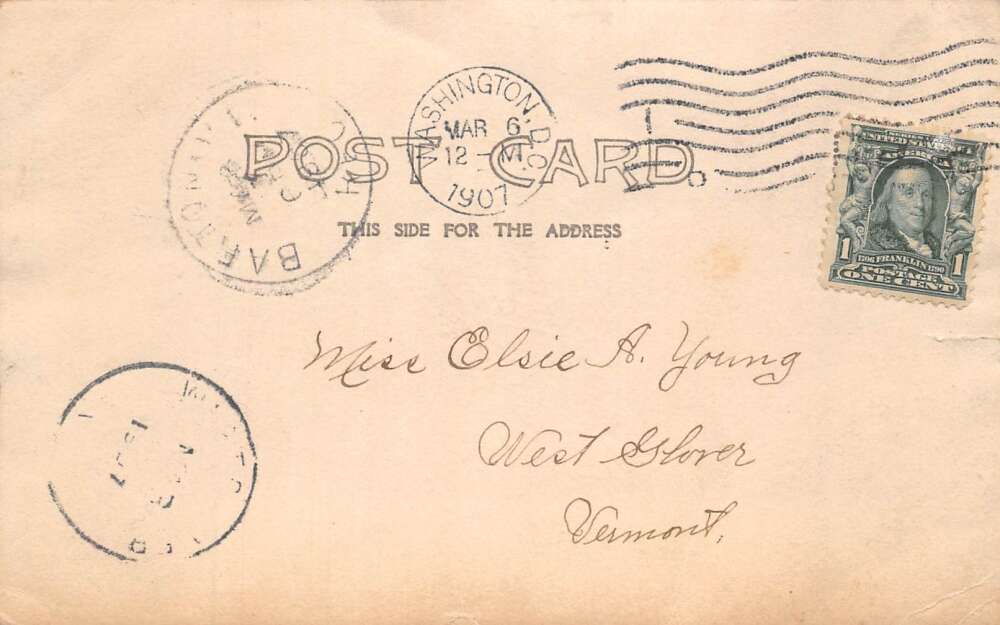 WASHINGTON, D.C.
MAR 6
12 - M
1907
POST CARD
THIS SIDE FOR THE ADDRESS
BARTON
MAR
UNITED STATES OF
AMERICA
1706 FRANKLIN 1790
1 POSTAGE 1
ONE CENT
Miss Elsie A. Young
West Glover
Vermont,